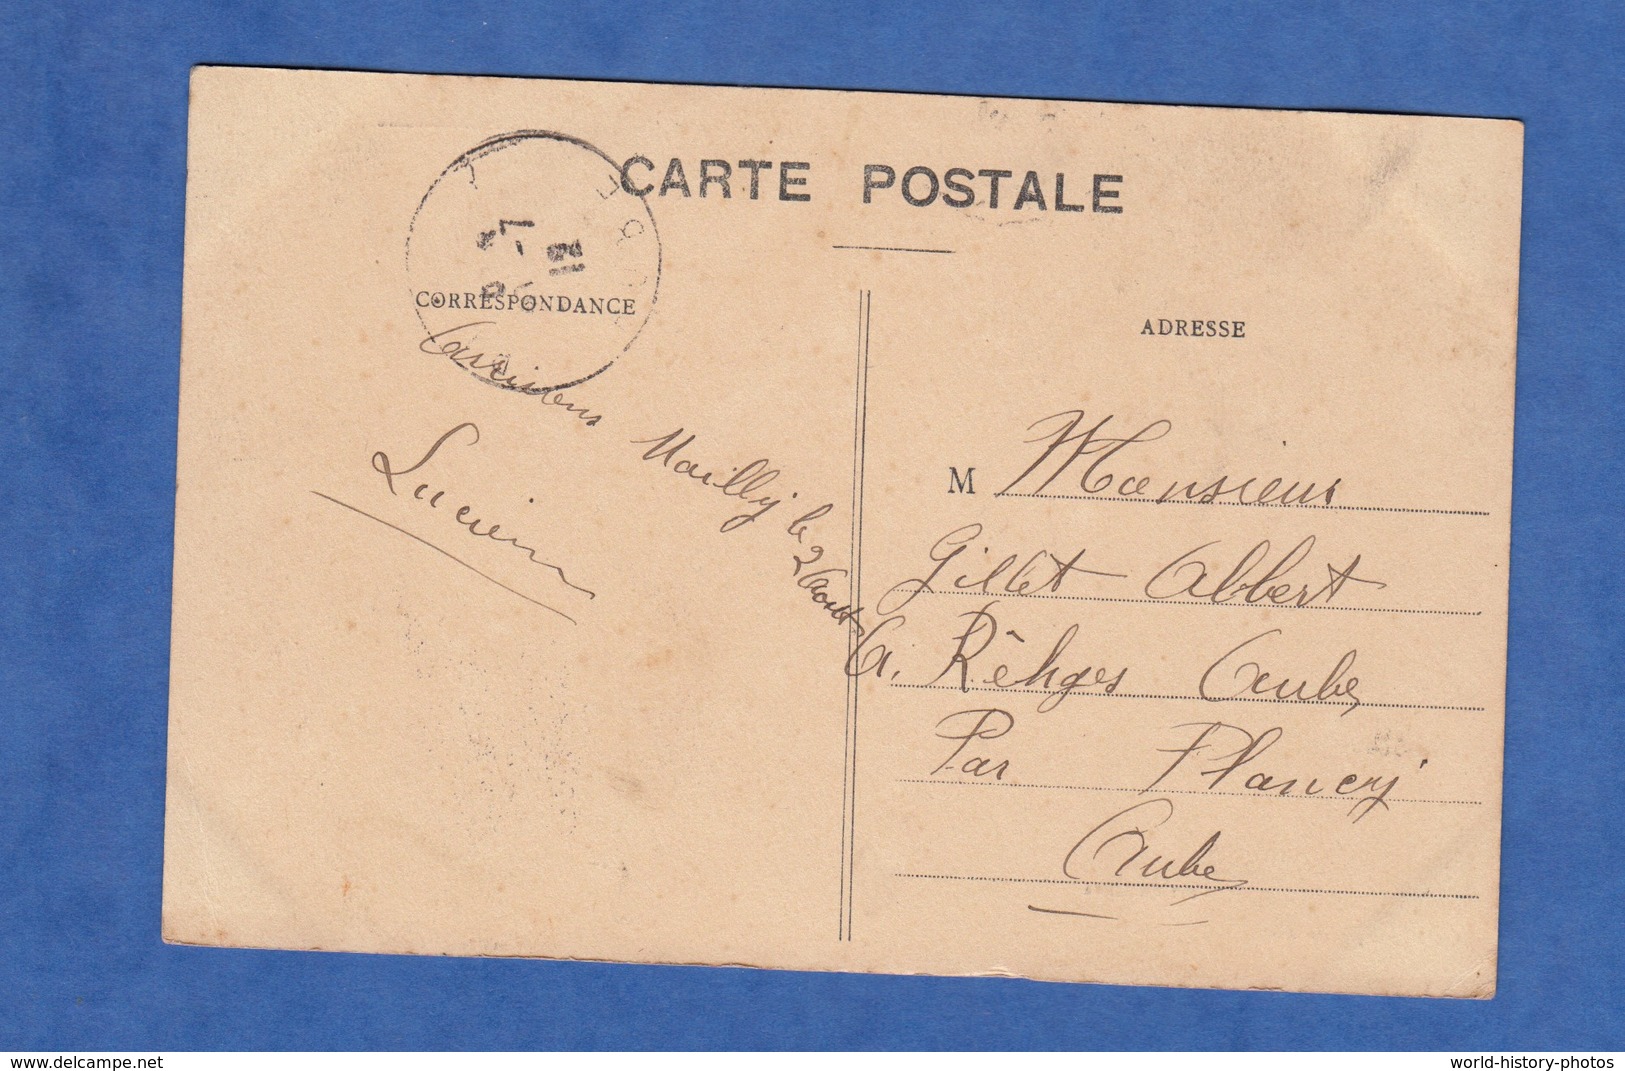 CARTE POSTALE
CORRESPONDANCE
ADRESSE
Mailly le 2 Aout
Lucien
M Monsieur
Gillet Albert
A. Rêhges Aube,
Par Plancy
Aube
www.delcampe.net
world-history-photos